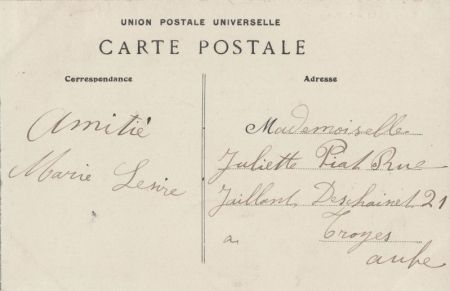 UNION POSTALE UNIVERSELLE
CARTE POSTALE
Correspondance
Amitié
Marie Lesire
Adresse
Mademoiselle
Juliette Piat Rue
Jaillant Deschainet 21
a Troyes
aube